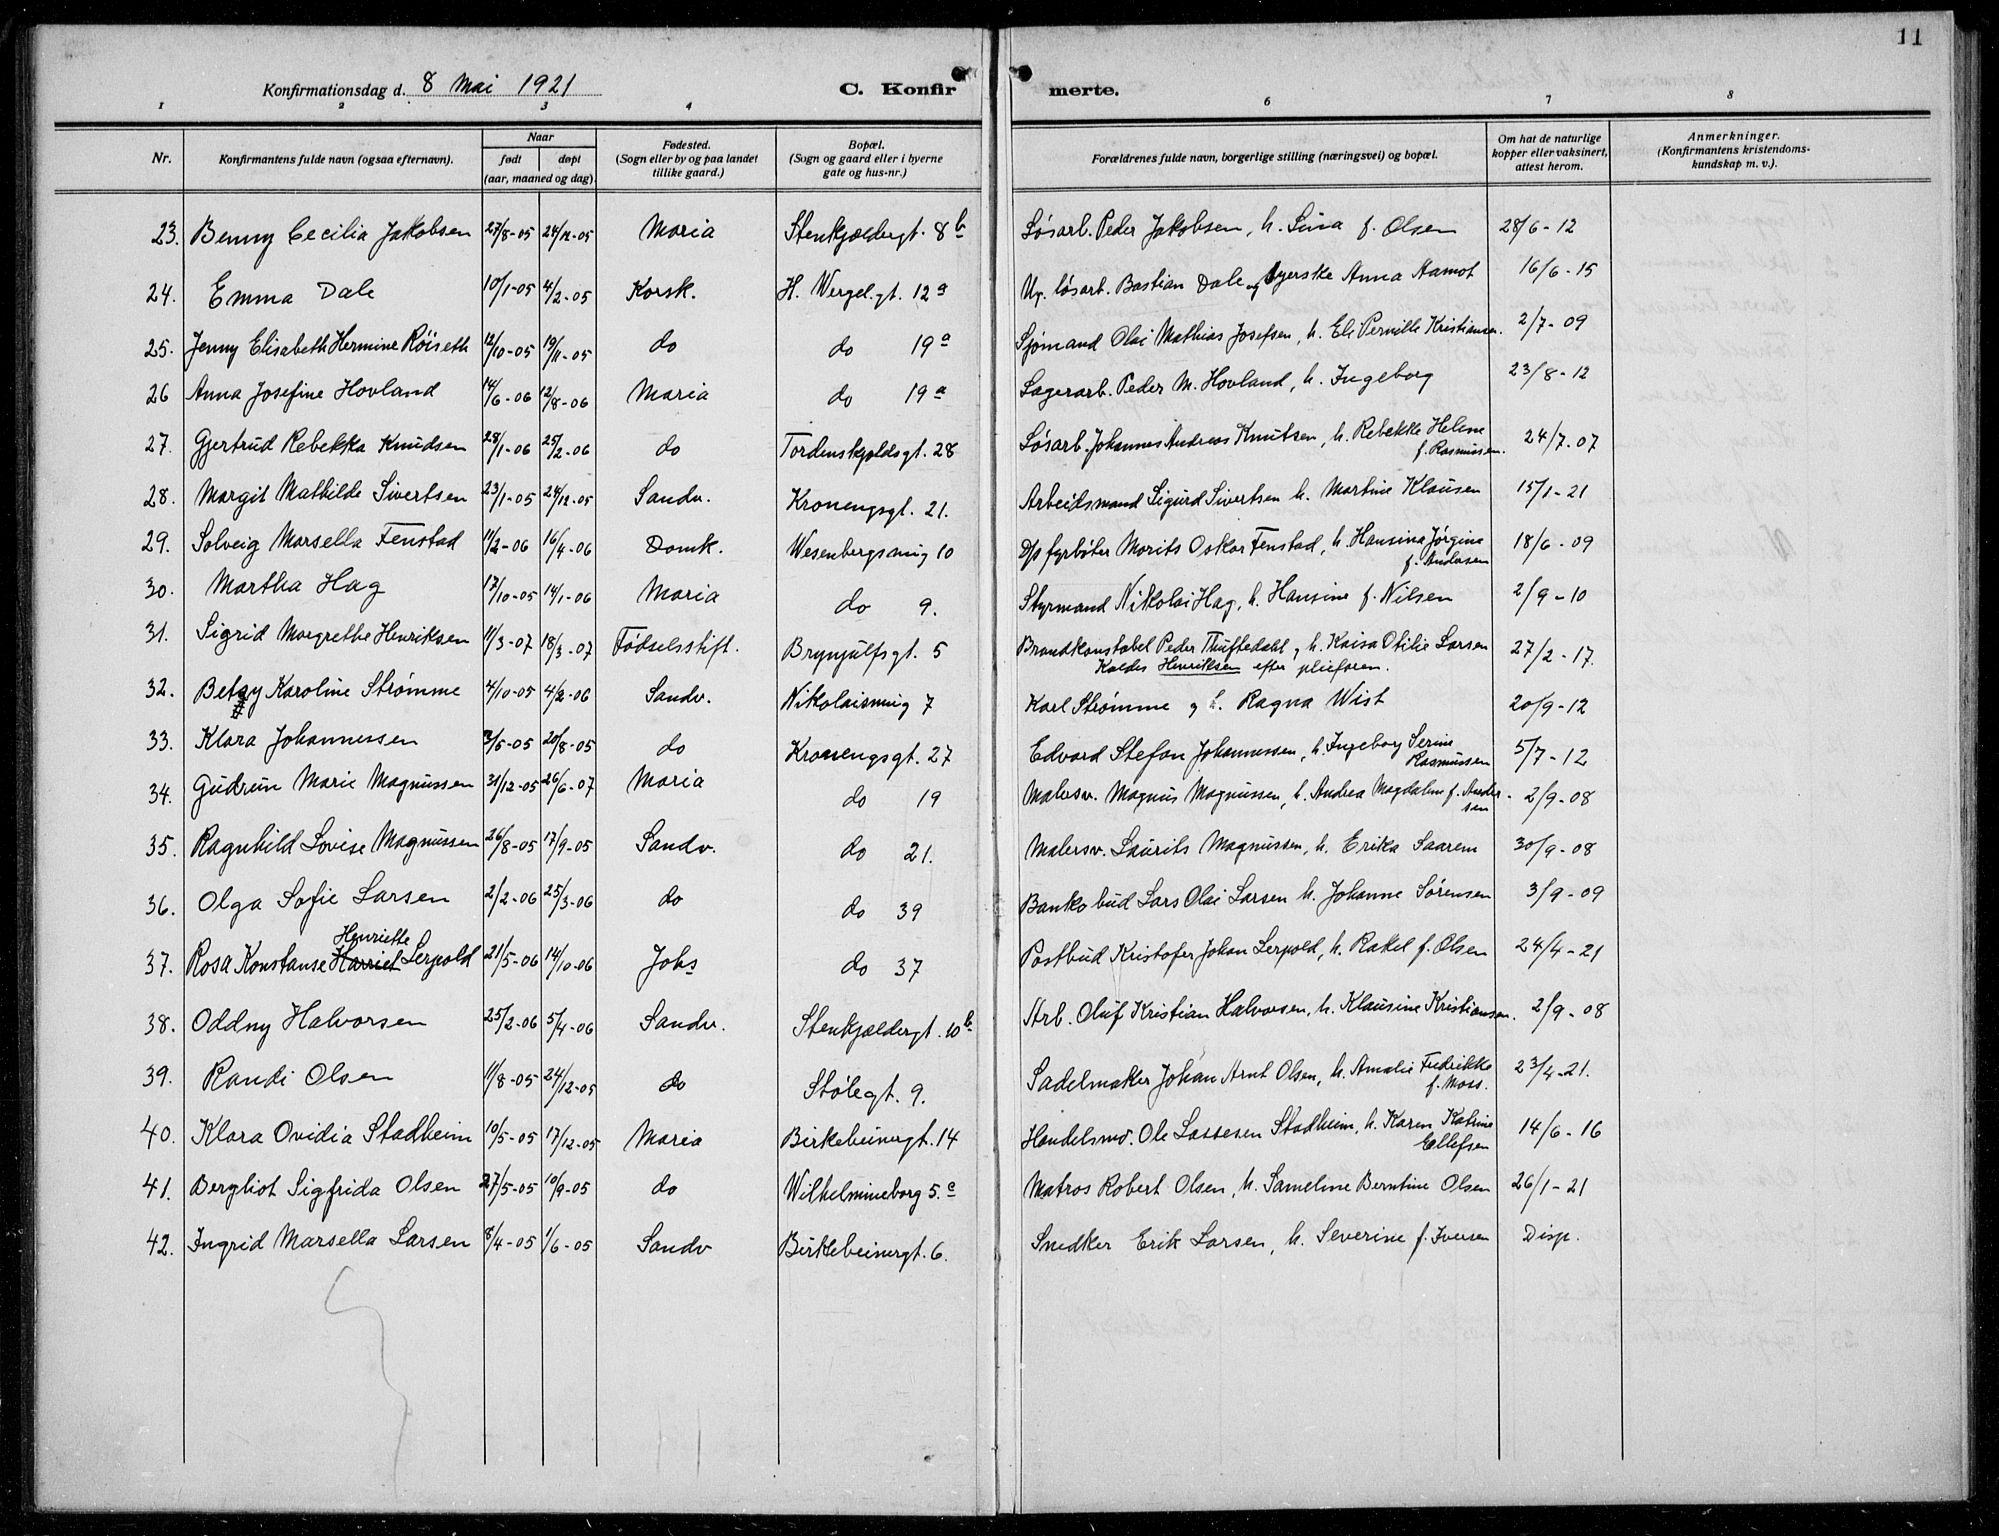 11
Konfirmationsdag d. 8 Mai 1921 C. Konfir merte.
1 2 3 4 6 7 8
Nr. Konfirmantens fulde navn (ogsaa efternavn). Naar født døpt (aar, maaned og dag). Fødested. (Sogn eller by og paa landet tillike gaard.) Bopæl. (Sogn og gaard eller i byerne gate og hus-nr.) Forældrenes fulde navn, borgerlige stilling (næringsvei) og bopæl. Om hat de naturlige kopper eller vaksinert, attest herom. Anmerkninger. (Konfirmantens kristendoms-kundskap m. v.).
23. Benny Cecilia Jakobsen 27/8-05 24/11-05 Maria Stenkjældergt. 8b Løsarb. Peder Jakobsen, h. Lina f. Olsen 28/6-12
24. Emma Dale 10/1-05 4/2-05 Korsk. H. Wergel.gt. 12a Ug. løsarb. Bastian Dale og syerske Anna Hamot 16/6-15
25. Jenny Elisabeth Hermine Röiseth 12/10-05 19/11-05 do do 19a Sjømand Olai Mathias Josefsen, h. Eli Pernille Kristiansen. 2/7-09
26 Anna Josefine Hovland 14/6-06 12/8-06 Maria do 19a Lagerarb. Peder M. Hovland, h. Ingeborg 23/8-12
27. Gjertrud Rebekka Knudsen 28/1-06 25/2-06 do Tordenskjoldsgt. 28 Løsarb. Johannes Andreas Knutsen, h. Rebekke Helene f. Rasmussen. 24/7-07
28. Margit Mathilde Sivertsen 23/1-05 24/12-05 Sandv. Kronengsgt. 21. Arbeidsmand Sigurd Sivertsen h. Martine Klausen 15/1-21
29. Solveig Marsella Fenstad 11/2-06 16/4-06 Domk. Wesenbergsmug 10 D/s fyrbøter Morits Oskar Fenstad, h. Hansina Jørgine f. Andersen 18/6-09
30. Martha Hag 17/10-05 14/1-06 Maria do 9. Styrmand Nikolai Hag, h. Hansine f. Nilsen 2/9-10
31. Sigrid Margrethe Henriksen 11/3-07 18/3-07 Fødselsstift. Brynjulfsgt. 5 Brandkonstabel Peder Thuftedahl, h. Kaisa Otilie Larsen 27/2-17.
Kaldes Henriksen efter pleiefaren.
32. Betsy Karoline Strømme 4/10-05 4/2-06 Sandv. Nikolaismug 7 Karl Strømme og h. Ragna Wist 20/9-12
33. Klara Johannessen 3/5-05 20/8-05 do Kronengsgt. 27 Edvard Stefan Johannessen, h. Ingeborg Serine Rasmussen 5/7-12
34. Gudrun Marie Magnussen 31/12-05 26/6-07 Maria do 19 Malersv. Magnus Magnussen, h. Andrea Magdalene f. Andersen 2/9-08
35. Ragnhild Lovise Magnussen 26/8-05 17/9-05 Sandv. do 21. Malersv. Laurits Magnussen, h. Erika Saarem 30/9-08
36. Olga Sofie Larsen 2/2-06 25/3-06 do do 39 Bankobud Lars Olai Larsen h. Johanne Sørensen 3/9-09
37. Rosa Konstanse Harriet Henriette Lerpold 21/5-06 14/10-06 Johs do 37 Postbud Kristofer Johan Lerpold, h. Rakel f. Olsen 24/4-21
38. Oddny Halvorsen 25/2-06 5/4-06 Sandv. Stenkjældergt. 10b Strb. Oluf Kristian Halvorsen, h. Klausine Kristiansen. 2/9-08
39. Randi Olsen 11/8-05 24/12-05 do Stølegt. 9. Sadelmaker Johan Arnt Olsen, h. Amalie Fredrikke f. Moss. 23/4-21.
40. Klara Ovidia Stadheim 10/5-05 17/12-05 Maria Birkebeinergt. 14 Handelsmd. Ole Lassesen Stadheim, h. Karen Katrine Ellefsen 14/6-16
41. Bergliot Sigfrida Olsen 27/5-05 10/9-05 do Wilhelmineborg 5.c Matros Robert Olsen, h. Sameline Berntine Olsen 26/1-21
42. Ingrid Marsella Larsen 8/4-05 1/6-05 Sandv Birkebeinergt. 6. Snedker Erik Larsen, h. Severine f. Iversen Disp.